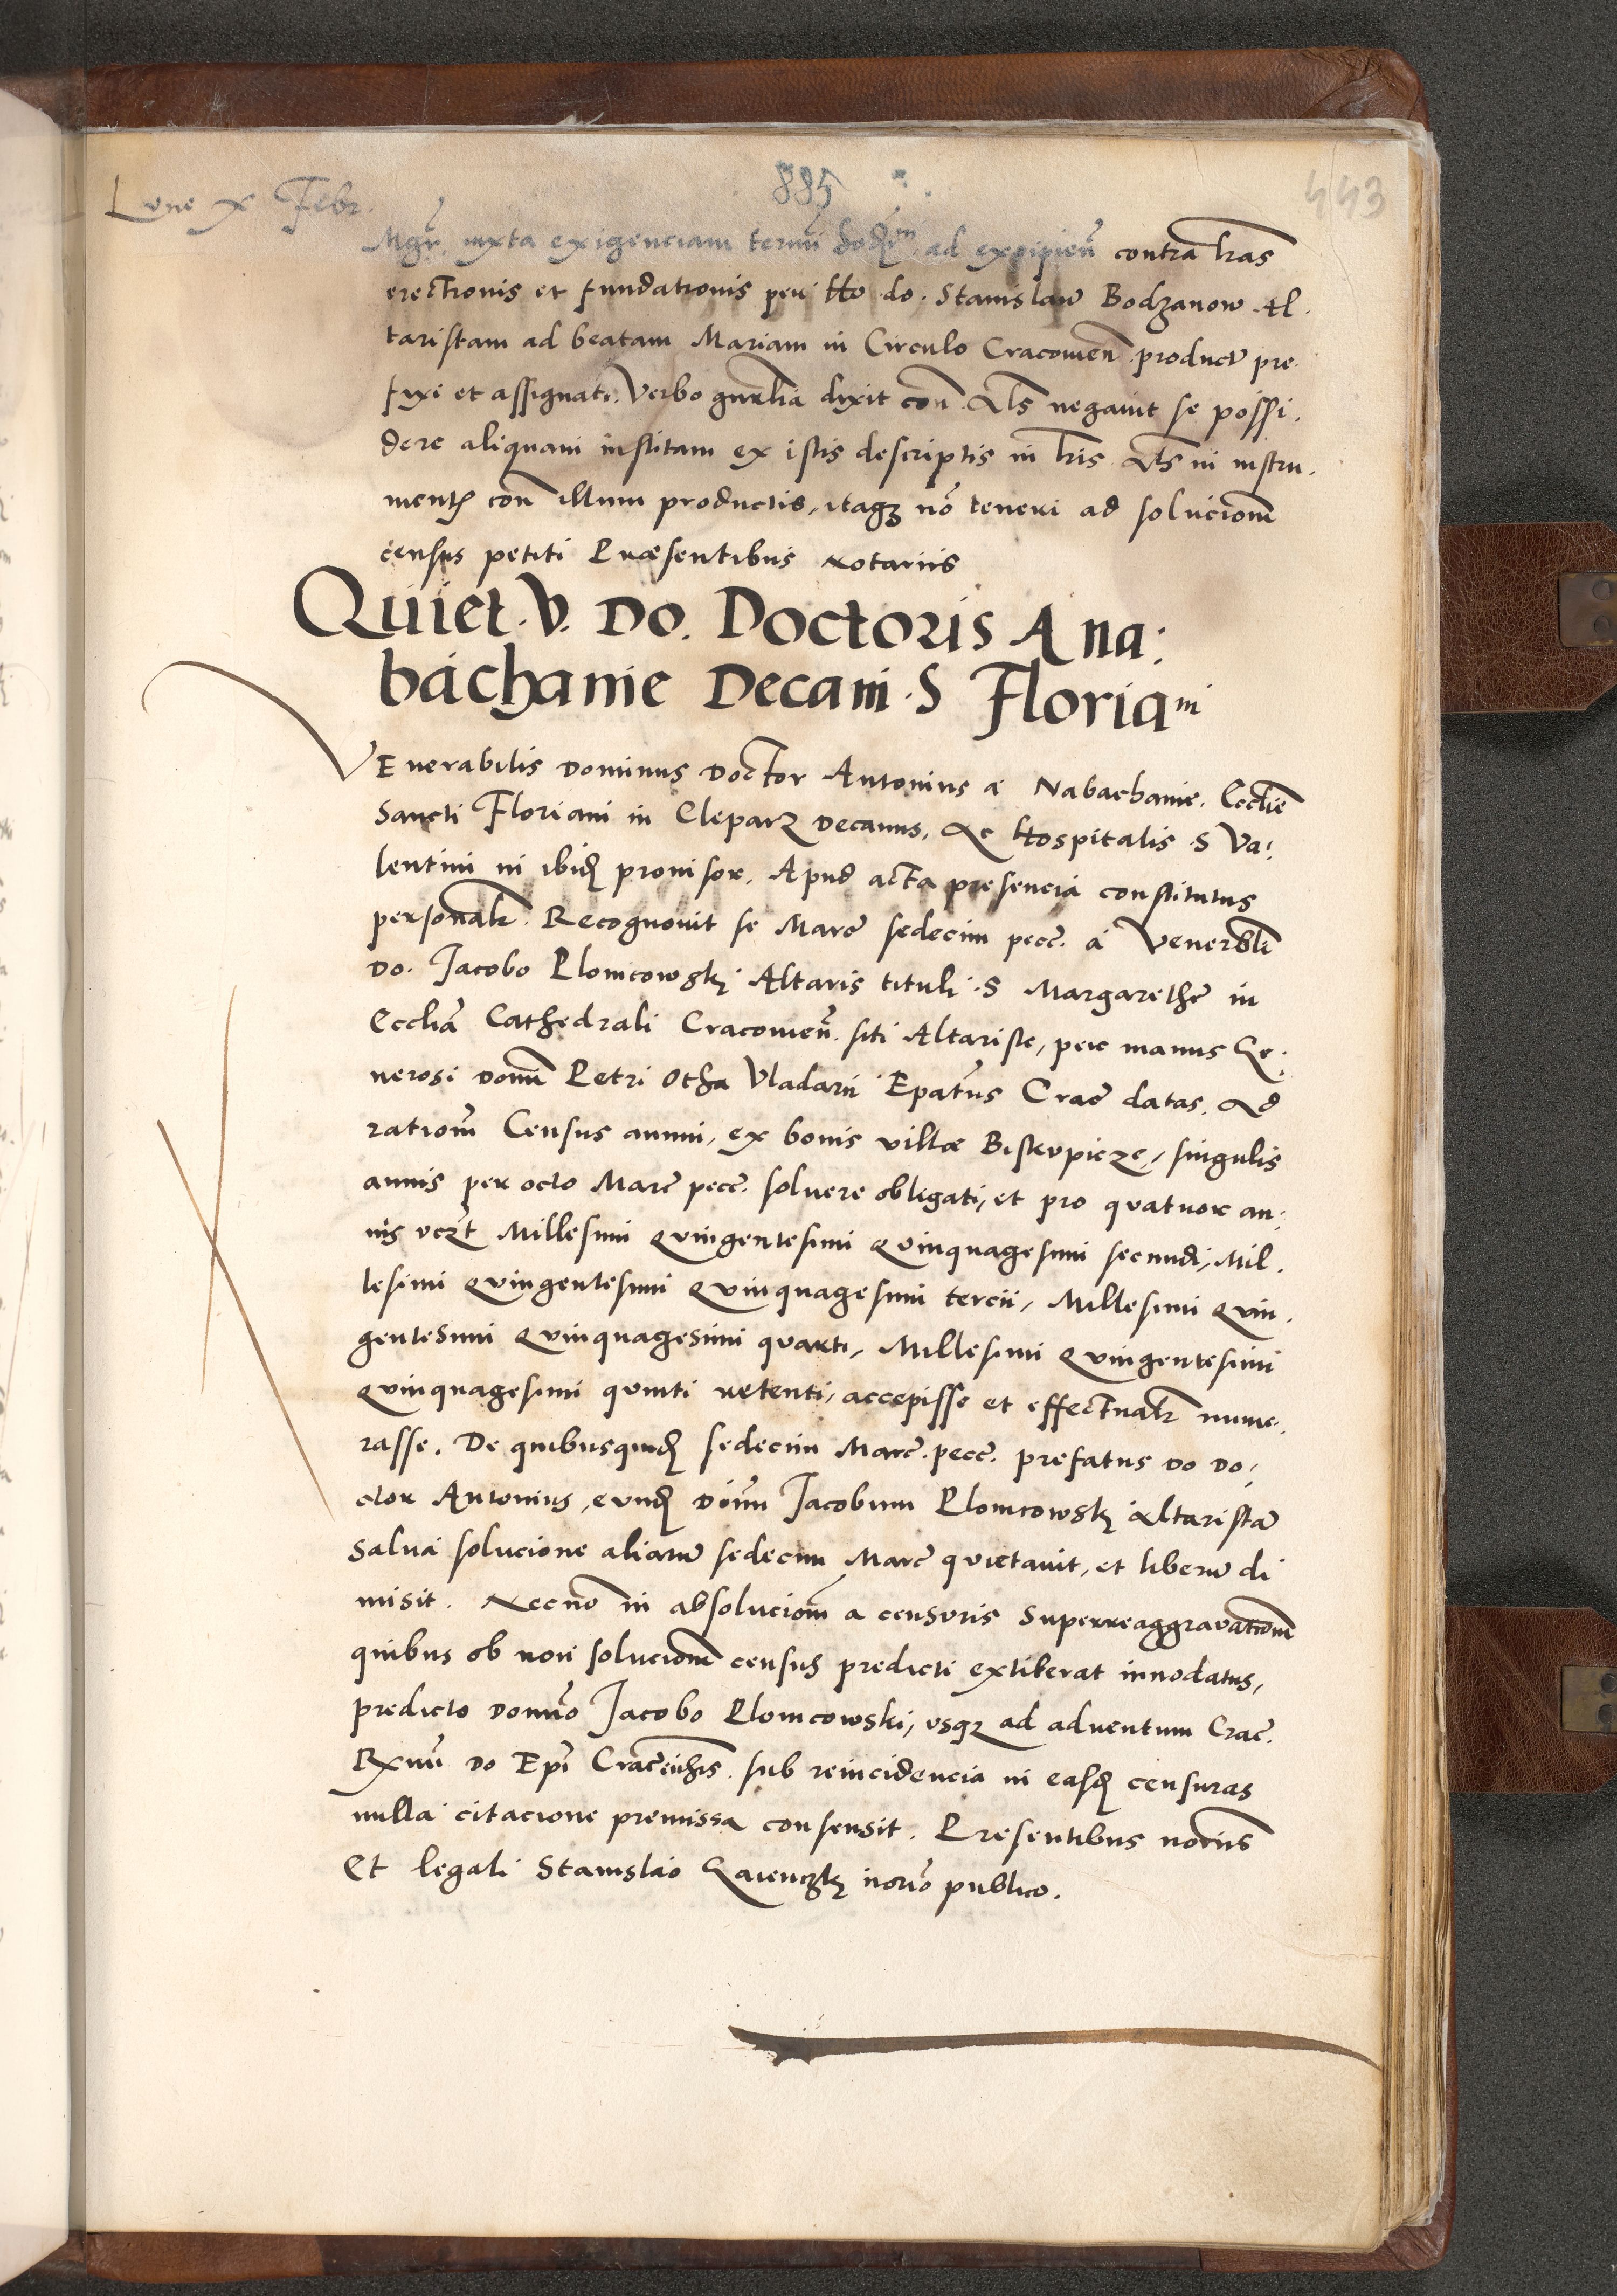 885
443
Lune x Febr.
Mgr. iuxta exigenciam termi hodierni ad excipien̄ contra l̄ras
erectionis et fundationis per Ho. do. Stanislaū Bodzanow Al.
taristam ad beatam Mariam in Circulo Cracovien̄ product̄ pre.
fixi et assignati. Verbo gn̄ralia dixit con̄ Als negavit se possi.
dere aliquam institam ex istis descriptis in l̄ris Als in instru.
ment̄ con̄ illum productis, itaqȝ nō teneri ad solucionē
census petiti Præsentibus Notariis
Quiet. V. Do. Doctoris A Na:
bachanie Decani S Floriani
VEnerabilis Dominus Doctor Antonius a Nabachanie. Eccliē
Sancti Floriani in Cleparz Decanus, Ac Hospitalis S Va:
lentini in ibid̄ provisor. Apud acta presencia constitutus
personalr̄. Recognovit se Marc̄ sedecim pecc̄. a Venerbli
Do. Jacobo Plomcowskj Altaris tituli S Margarethē in
Ecclīa Cathedrali Cracovien̄. siti Altariste, per manus Ge.
nerosi Domī Petri Otha Vladarii Epatus Crac̄ datas. Ad
rationē Census annui, ex bonis villæ Biskvpicze, singulis
annis per octo Marc̄ pecc̄. solvere obligati, et pro quatuor an:
nis vcz̄t Millesimi Qvingentesimi Qvinquagesimi secundi, Mil.
lesimi Qvingentesimi Qvinquagesimi tercii, Millesimi Qvin.
gentesimi Qvinquagesimi qvarti, Millesimi Qvingentesimi
Qvinquagesimi qvinti retenti, accepisse et effectualr̄ nume.
rasse. De quibusquid̄ sedecim Marc̄. pecc̄. prefatus Do Do,
ctor Antonius, eund̄ Dōm Jacobum Plomcowskj Altaristā
salva solucione aliarū sedecim Marc̄ qvietavit, et liberū di
misit. Necno in absolucionē a censvris Superreaggravationū
quibus ob non solucionē census predicti extiterat innodatus,
predicto domīo Jacobo Plomcowski, vsqȝ ad adventum Crac̄.
Rx̄mi Do Epi Cracēn̄sis. sub reincidencia in easd̄ censuras
nulla citacione premissa consensit. Presentibus nōriis
Et legali Stanislāo Gaienczkj nōrio publico.